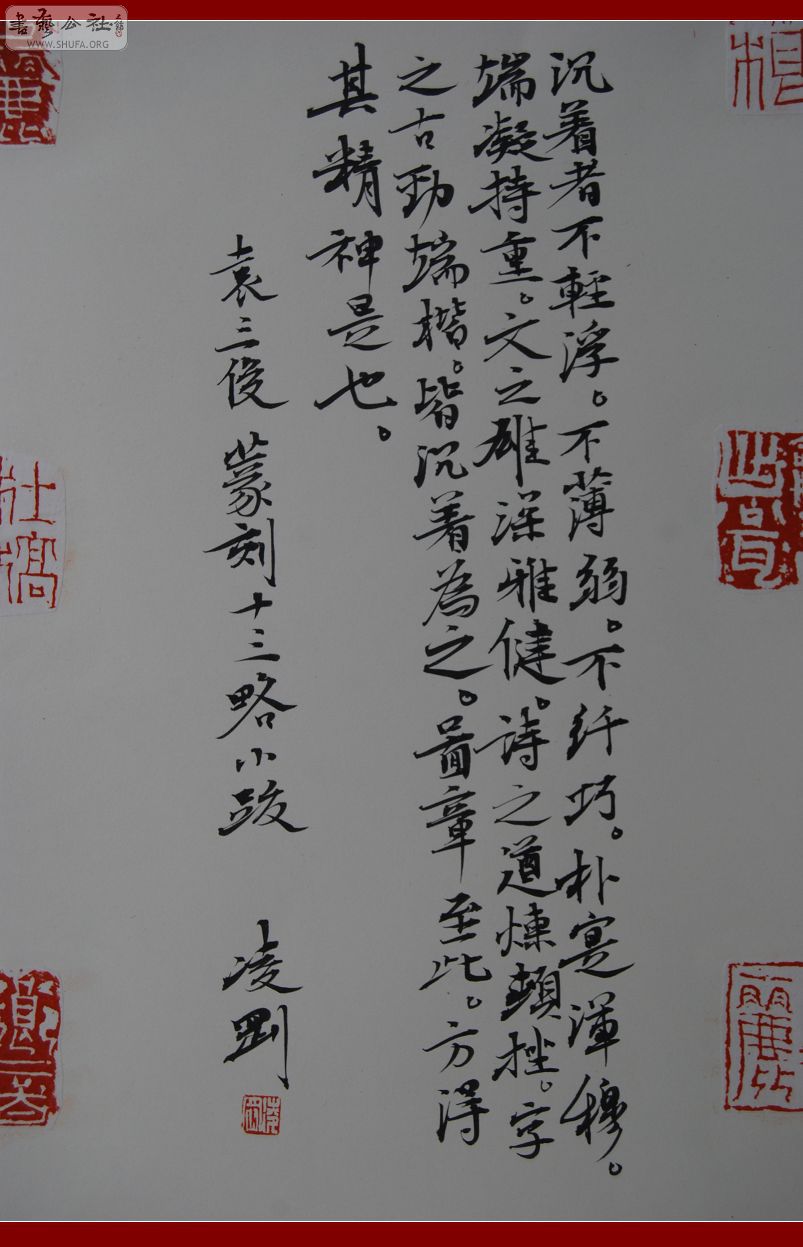 書藝公社
WWW.SHUFA.ORG
沉着者不輕浮。不薄弱。不纤巧。朴寔渾穆。
端凝持重。文之雄深雅健。詩之遒煉頓挫。字
之古勁端楷。皆沉着為之。啚章至此。方得
其精神是也。
袁三俊 篆刻十三略小跋 凌剛